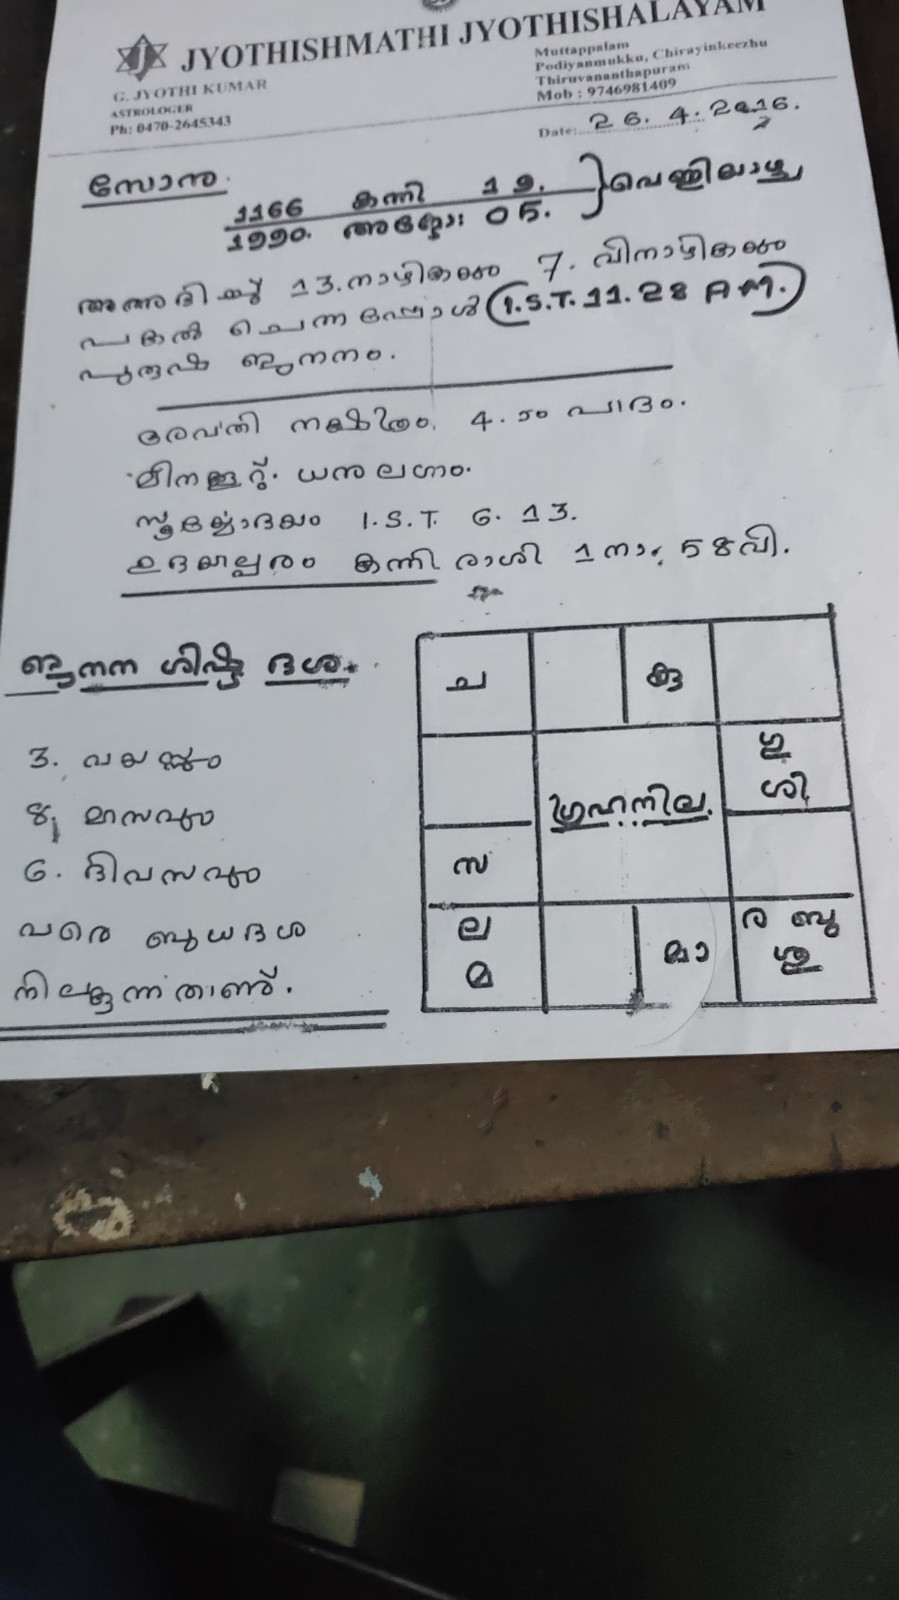 JYOTHISHMATHI JYOTHISHALAYAM
G. JYOTHI KUMAR
ASTROLOGER
Ph: 0470-2645343
Muttappalam
Podiyanmukku, Chirayinkeezhu
Thiruvananthapuram
Mob : 9746981409
Date: 26.4.2016.
സോനു.
1166 കന്നി 19. } വെള്ളിയാഴ്ച
1990. ഒക്ടോ: 05.
13. നാഴികയും 7. വിനാഴികയും
പകൽ ചെന്നപ്പോൾ (I.S.T. 11.28 AM.)
പുരുഷ ജനനം.
രേവതി നക്ഷത്രം. 4-ാം പാദം.
മീനക്കൂറ്. ധനു ലഗ്നം.
സൂര്യോദയം I.S.T. 6.13.
ഉദയാല്പരം കന്നി രാശി 1 നാ. 58 വി.
ജനന ശിഷ്ട ദശ.
3. വയസ്സും
8, മാസവും
6. ദിവസവും
വരെ ബുധദശ
നില്ക്കുന്നതാണ്.
ച കു
ഗു
ശി
ഗ്രഹനില.
സ
ല ര ബു
മ മാ ശു